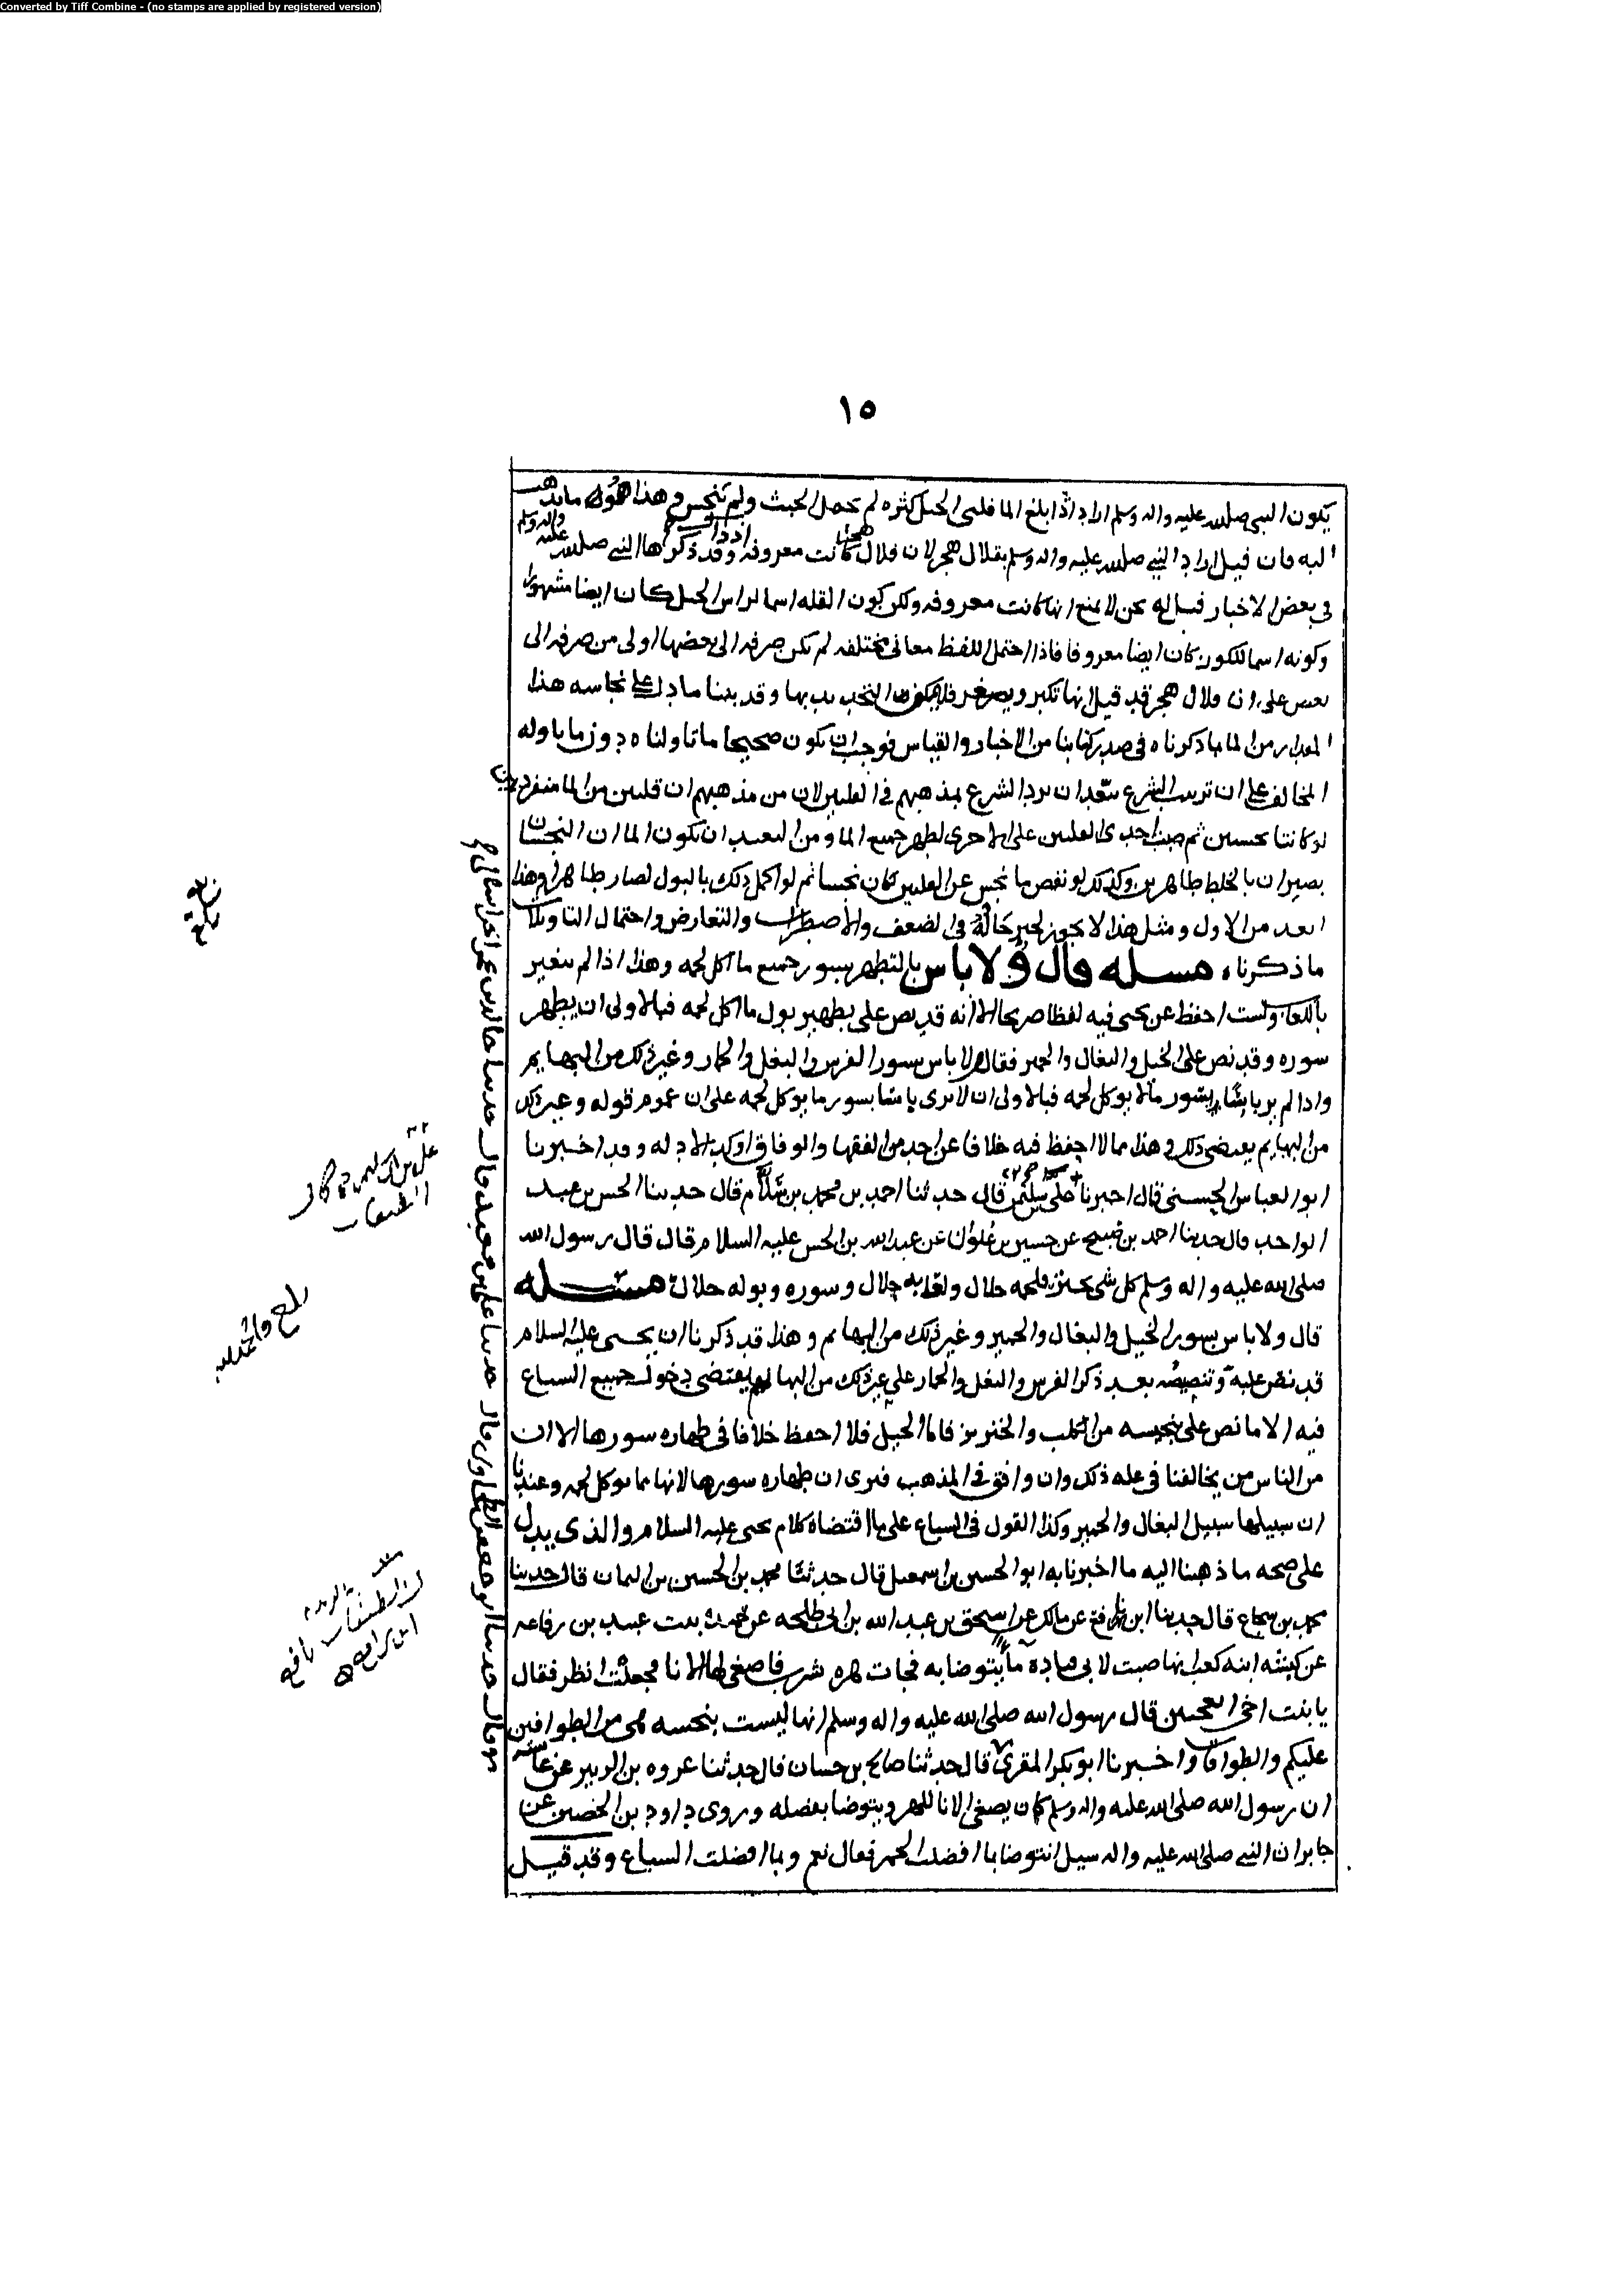 Converted by Tiff Combine - (no stamps are applied by registered version)
١٥
يكون النبي صلى الله عليه واله وسلم اراد اذا بلغ الما قلتي الجبل كثره لم يحمل الخبث ولم تنجس وهذا هو ما يذهب
اليه فان قيل اراد النبي صلى الله عليه واله وسلم بقلال هجر لان قلال هجر كانت معروفه وقد ذكرها النبي صلى الله عليه واله وسلم
في بعض الاخبار قيل له نحن لا نمنع انها كانت معروفه ولكن كون القله اسما لراس الجبل كان ايضا مشهورا
وكونه اسما للكون كان ايضا معروفا فاذا احتمل اللفظ معاني مختلفه لم يكن صرفه الى بعضها اولى من صرفه الى
بعض على ان قلال هجر قد قيل انها تكبر ويصغر فلا يمكن التحديد بها وقد بينا ما دل على نجاسه هذا
المقدار من الما بما ذكرناه في صدر كتابنا من الاخبار والقياس فوجب ان يكون صحيحا ما تاولناه دون ما تاوله
المخالف على ان ترتيب الشرع يبعد ان يرد الشرع بمذهبهم في القلتين لان من مذهبهم ان قلتين من الما منفردتين
لو كانتا نجسين ثم صبت احدى القلتين على الاخرى لطهر جميع الما ومن البعيد ان يكون الما ان النجسان
يصيران بالخلط طاهرين وكذلك لو نقص ما نجس عن القلتين كان نجسا ثم لو اكمل ذلك بالبول لصار طاهرا وهذا
ابعد من الاول ومثل هذا لا يجوز لخبر حاله في الضعف والاضطراب والتعارض واحتمال التاويل
ما ذكرناه مسله قال ولا باس بالتطهر بسور جميع ما اكل لحمه وهذا اذا لم يتغير
باللعاب ولست احفظ عن يحيى فيه لفظا صريحا الا انه قد نص على تطهير بول ما اكل لحمه فبالاولى ان يطهر
سوره وقد نص على الخيل والبغال والحمير فقال ولا باس بسور الفرس والبغل والحمار وغير ذلك من البهايم
واذا لم ير باسا بسور ما لا يوكل لحمه فبالاولى ان لا يرى باسا بسور ما يوكل لحمه على ان عموم قوله وغير ذلك
من البهايم يقتضي ذلك وهذا مما لا احفظ فيه خلافا عن احد من الفقها والوفاق اوكد الادله وقد اخبرنا
ابو العباس الحسني قال اخبرنا قال حدثنا احمد بن محمد بن سلام قال حدثنا الحسن بن عبد
الواحد قال حدثنا احمد بن صبيح عن حسين بن علوان عن عبد الله بن الحسن عليه السلام قال قال رسول الله
صلى الله عليه واله وسلم كل شي يجتر فلحمه حلال ولعابه حلال وسوره وبوله حلال مسئله
قال ولا باس بسور الخيل والبغال والحمير وغير ذلك من البهايم وهذا قد ذكرنا ان يحيى عليه السلام
قد نص عليه وتنصيصه بعد ذكر الفرس والبغل والحمار على غير ذلك من البهايم يقتضي دخول جميع السباع
فيه الا ما نص على تنجيسه من الكلب والخنزير فاما الخيل فلا احفظ خلافا في طهاره سورها الا ان
من الناس من يخالفنا في عله ذلك وان وافق في المذهب فيرى ان طهاره سورها لانها مما يوكل لحمه وعندنا
ان سبيلها سبيل البغال والحمير وكذا القول في السباع على ما اقتضاه كلام يحيى عليه السلام والذي يدل
على صحه ما ذهبنا اليه ما اخبرنا به ابو الحسين بن اسمعيل قال حدثنا محمد بن الحسين بن اليمان قال حدثنا
محمد بن شجاع قال حدثنا ابن نافع عن مالك عن اسحق بن عبد الله بن ابي طلحه عن حميده بنت عبيد بن رفاعه
عن كبشه ابنه كعب انها صبت لابي قتادة ما يتوضا به فجات هره تشرب فاصغى لها الانا فجعلت انظر فقال
يا بنت اخي اتعجبين قال رسول الله صلى الله عليه واله وسلم انها ليست بنجسه هي من الطوافين
عليكم والطوافات واخبرنا ابو بكر المقرئ قال حدثنا صالح بن حسان قال حدثنا عروه بن الزبير عن عائشه
ان رسول الله صلى الله عليه واله وسلم كان يصغي الانا للهر ويتوضا بفضله وروى داود بن الحصين عن
جابر ان النبي صلى الله عليه واله سيل انتوضا بما افضلت الحمر فقال نعم وبما افضلت السباع وقد قيل
قال حدثنا ابو جعفر الطحاوي قال حدثنا علي بن معبد قال حدثنا خالد بن عمرو الخراساني